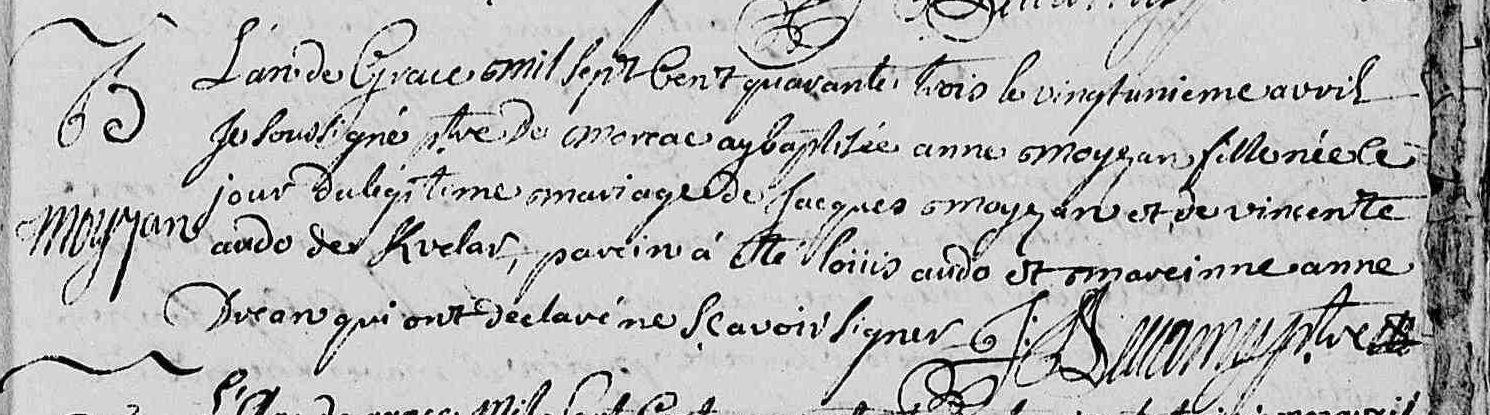 B
moyzan
L'an de Grace mil sept Cent quarante trois le vingtunieme avril
Je Soussigné ptre de moreac ay baptisée anne moyzan fille née le
jour du légitime mariage de Jacques moyzan et de vincente
audo de Kvelar, parein á Eté loüis audo et mareinne anne
Drean qui ont declaré ne Sçavoir Signer J: ptre
L'An de grace Mil Sept Cent avril